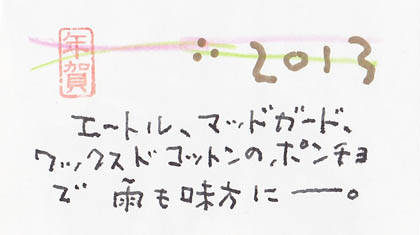 年賀
2013
エートル、マッドガード、
ワックスドコットンの、ポンチョ
で 雨も味方に ──。